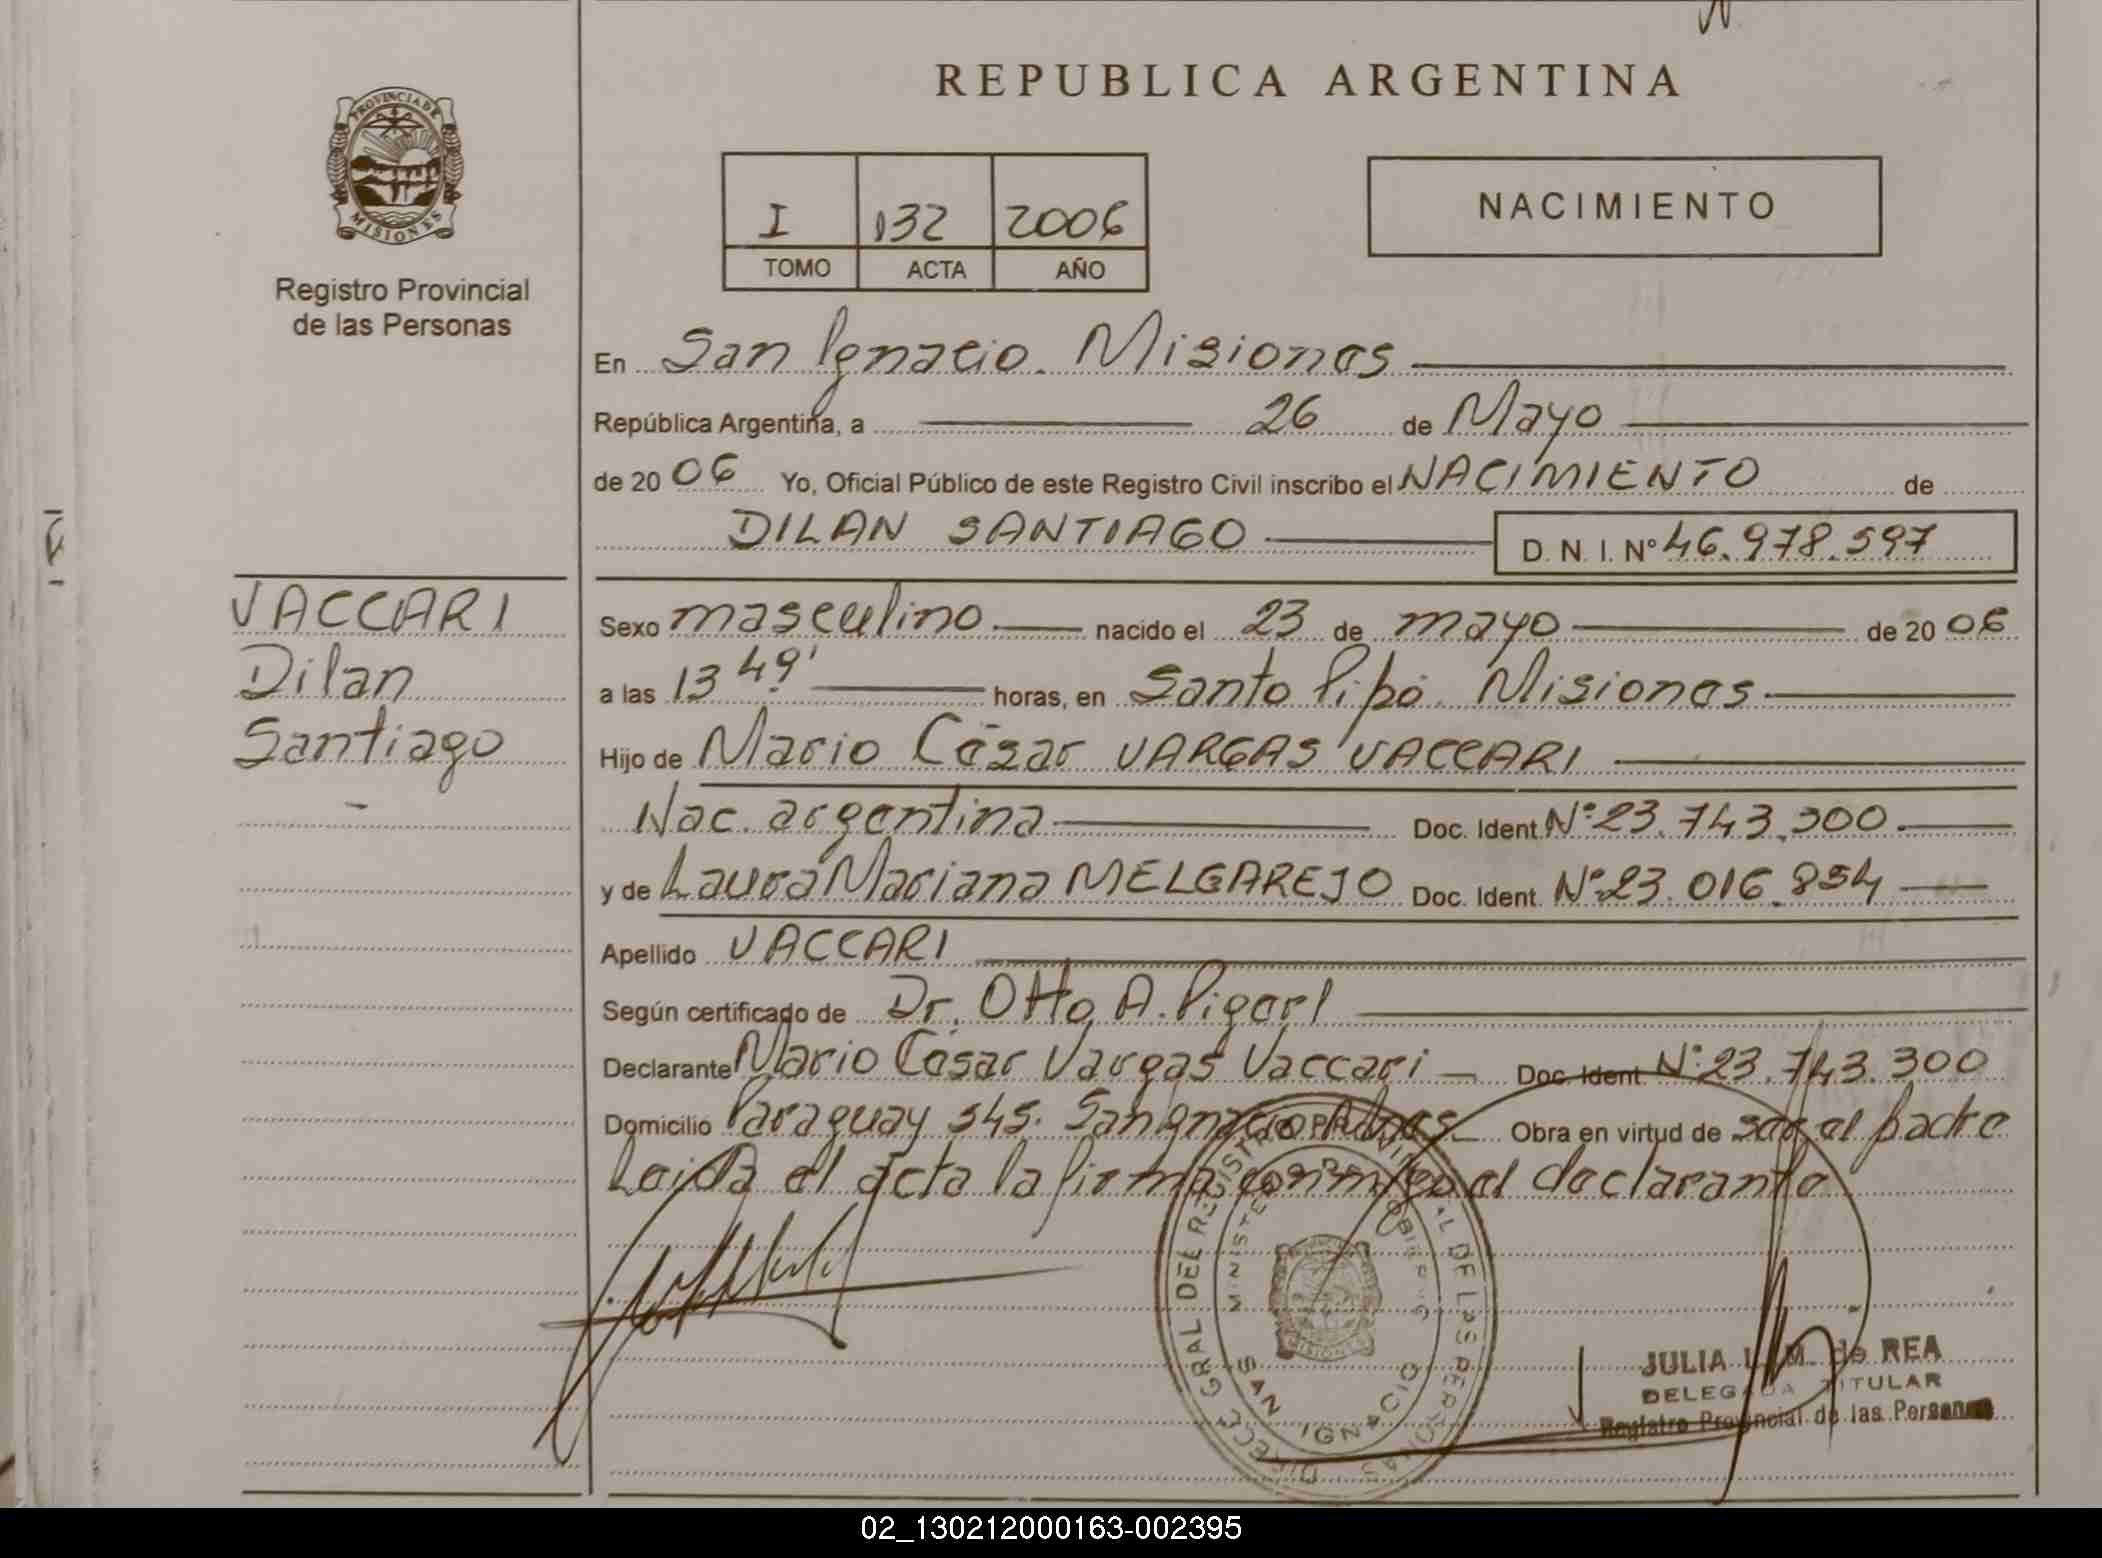 REPUBLICA ARGENTINA
PROVINCIA DE MISIONES
Registro Provincial
de las Personas
I 132 2006
TOMO ACTA AÑO
NACIMIENTO
En San Ignacio. Misiones
República Argentina, a 26 de Mayo
de 20 06 Yo, Oficial Público de este Registro Civil inscribo el NACIMIENTO de
DILAN SANTIAGO D. N. I. Nº 46.978.597
VACCARI
Dilan
Santiago
Sexo masculino nacido el 23 de mayo de 20 06
a las 13 49' horas, en Santo Pipó. Misiones
Hijo de Mario César VARGAS VACCARI
Nac. argentina Doc. Ident. Nº 23.743.300
y de Laura Mariana MELGAREJO Doc. Ident. Nº 23.016.854
Apellido VACCARI
Según certificado de Dr. Otto A.
Declarante Mario César Vargas Vaccari Doc. Ident. Nº 23.743.300
Domicilio Paraguay 545. San Ignacio Mnes. Obra en virtud de ser el padre
Leida el acta la firma conmigo el declarante
DIRECC GRAL DEL REGISTRO PROVINCIAL DE LAS PERSONAS
MINISTERIO DE GOBIERNO
SAN IGNACIO
JULIA L. M. de REA
DELEGADA TITULAR
Registro Provincial de las Personas
02_130212000163-002395